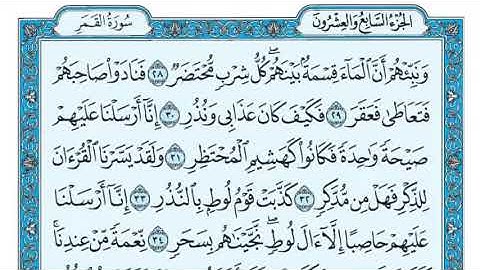 الجزء السابع والعشرون
سورة القمر
وَنَبِّئْهُمْ أَنَّ ٱلْمَآءَ قِسْمَةٌۢ بَيْنَهُمْ ۖ كُلُّ شِرْبٍ مُّحْتَضَرٌ ٢٨ فَنَادَوْا۟ صَاحِبَهُمْ
فَتَعَاطَىٰ فَعَقَرَ ٢٩ فَكَيْفَ كَانَ عَذَابِى وَنُذُرِ ٣٠ إِنَّآ أَرْسَلْنَا عَلَيْهِمْ
صَيْحَةً وَٰحِدَةً فَكَانُوا۟ كَهَشِيمِ ٱلْمُحْتَظِرِ ٣١ وَلَقَدْ يَسَّرْنَا ٱلْقُرْءَانَ
لِلذِّكْرِ فَهَلْ مِن مُّدَّكِرٍ ٣٢ كَذَّبَتْ قَوْمُ لُوطٍۭ بِٱلنُّذُرِ ٣٣ إِنَّآ أَرْسَلْنَا
عَلَيْهِمْ حَاصِبًا إِلَّآ ءَالَ لُوطٍ ۖ نَّجَّيْنَٰهُم بِسَحَرٍ ٣٤ نِّعْمَةً مِّنْ عِندِنَا ۚ